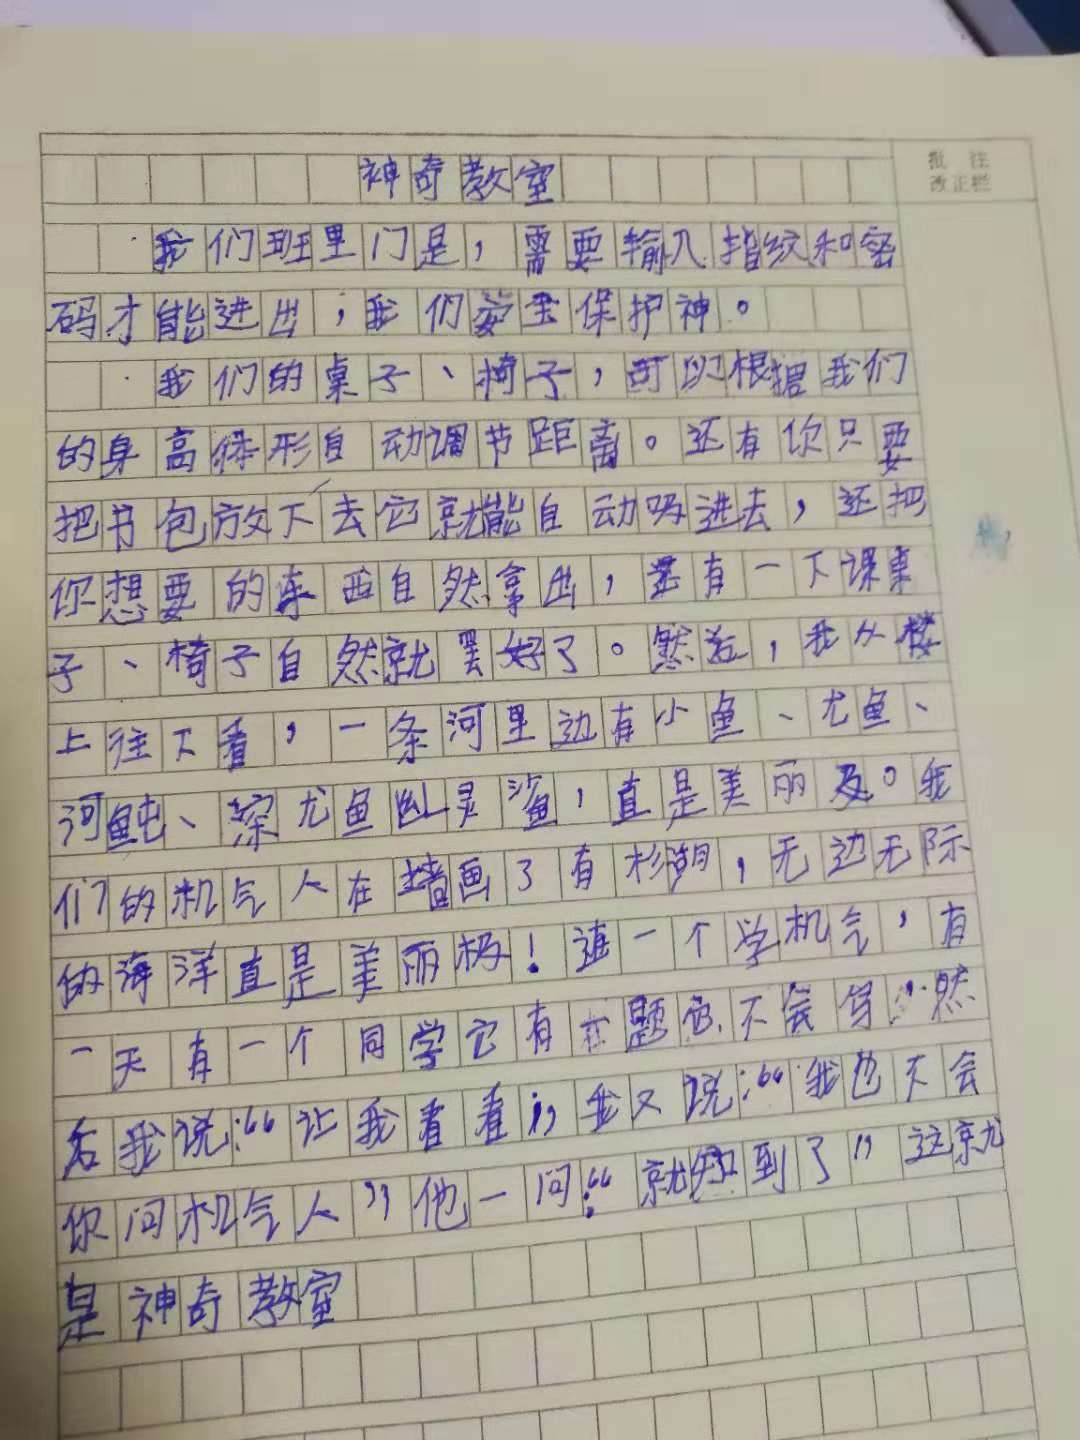 批 注
改正栏
神奇教室
我们班里门是，需要输入指纹和密
码才能进出，我们安全保护神。
我们的桌子、椅子，可以根据我们
的身高体形自动调节距离。还有你只要
把书包放下去它就能自动吸进去，还把
你想要的东西自然拿出，还有一下课桌
子、椅子自然就罢好了。然后，我从楼
上往下看，一条河里边有小鱼、尤鱼、
河鲀、深尤鱼幽灵鲨，直是美丽及。我
们的机气人在墙画了有杉湖，无边无际
的海洋直是美丽极！进一个学机气，有
一天有一个同学它有 题它不会写 然
后我说：“让我看看”我又说：“我也不会
你问机气人”他一问：“就知到了”这就
是神奇教室